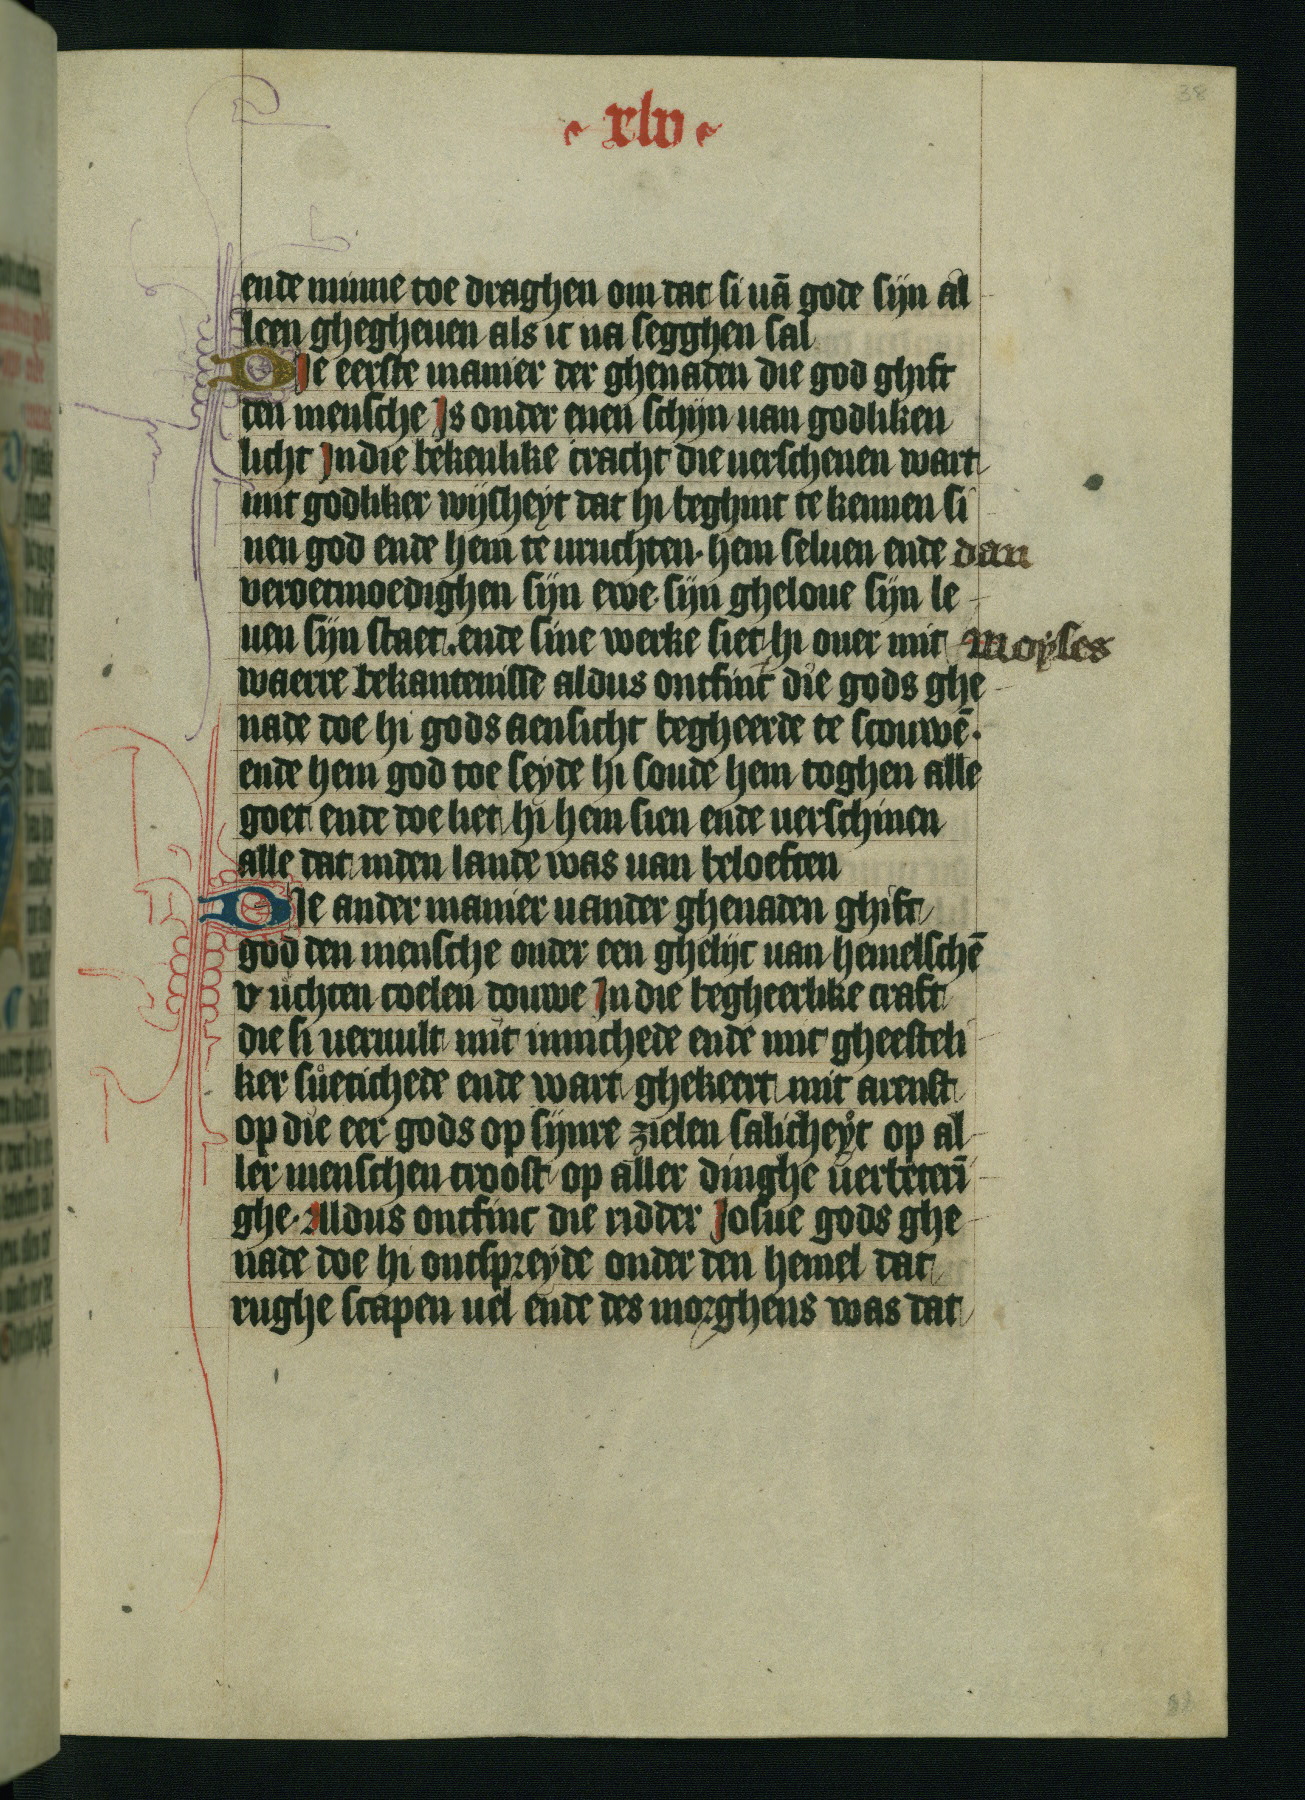 xlv
38
ende minne toe draghen om dat si uā gode sijn al
leen ghegheuen als ic na segghen sal
Die eerste manier der ghenaden die god ghift
den mensche Is onder enen schijn uan godliken
licht In die bekenlike cracht die uerschenen wart
mit godliker wijsheyt dat hi beghint te kennen si
nen god ende hem te uruchten. hem seluen ende dan
veroetmoedighen sijn ewe. sijn gheloue sijn le
uen sijn staet. ende sine werke siet hi ouer mit Moyses
waerre bekantenisse aldus ontfinc die gods ghe
nade doe hi gods aensicht begheerde te scouwē.
ende hem god toe seyde hi soude hem toghen alle
goet ende doe liet hi hem sien ende uerschinen
alle dat inden lande was uan beloeften
Die ander manier uander ghenaden ghift
god den mensche onder een ghelijc uan hemelschē
vuchten coelen douwe In die begheerlike craft
die si veruult mit innichede ende mit gheesteli
ker suetichede ende wart ghekeert mit arenst
op die eer gods op sijnre zielen salicheyt op al
ler menschen troost op aller dinghe uerbeterī
ghe. Aldus ontfinc die ridder Josue gods ghe
nade doe hi ontspreyde onder den hemel dat
rughe scapen uel ende des morghens was dat